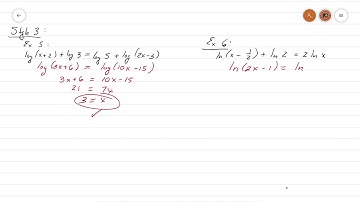 Style 3:
Ex 5:
log(x+2) + log 3 = log 5 + log(2x-3)
log(3x+6) = log(10x-15)
3x+6 = 10x-15
21 = 7x
3 = x
Ex 6:
ln(x - 1/2) + ln 2 = 2 ln x
ln(2x-1) = ln